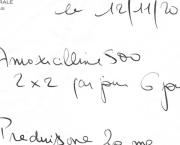 RALE
le 12/11/20
Amoxicilline 500
2 x 2 par jour 6 jo
Prednisone 20 mg